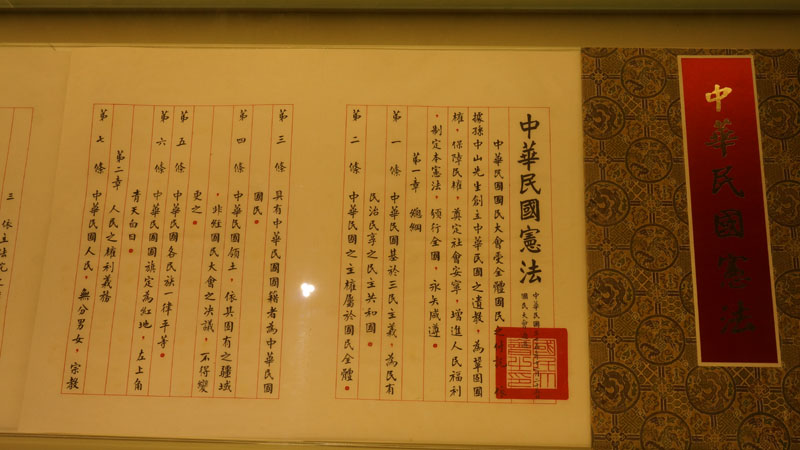 中華民國憲法
中華民國憲法
中華民國
國民大會
中華民國國民大會受全體國民之付託,依
據孫中山先生創立中華民國之遺教,為鞏固國
權,保障民權,奠定社會安寧,增進人民福利
,制定本憲法,頒行全國,永矢咸遵。
第一章 總綱
第一條 中華民國基於三民主義,為民有
民治民享之民主共和國。
第二條 中華民國之主權屬於國民全體。
第三條 具有中華民國國籍者為中華民國
國民。
第四條 中華民國領土,依其固有之疆域
,非經國民大會之決議,不得變
更之。
第五條 中華民國各民族一律平等。
第六條 中華民國國旗定為紅地,左上角
青天白日。
第二章 人民之權利義務
第七條 中華民國人民,無分男女,宗教
三 依立法院之